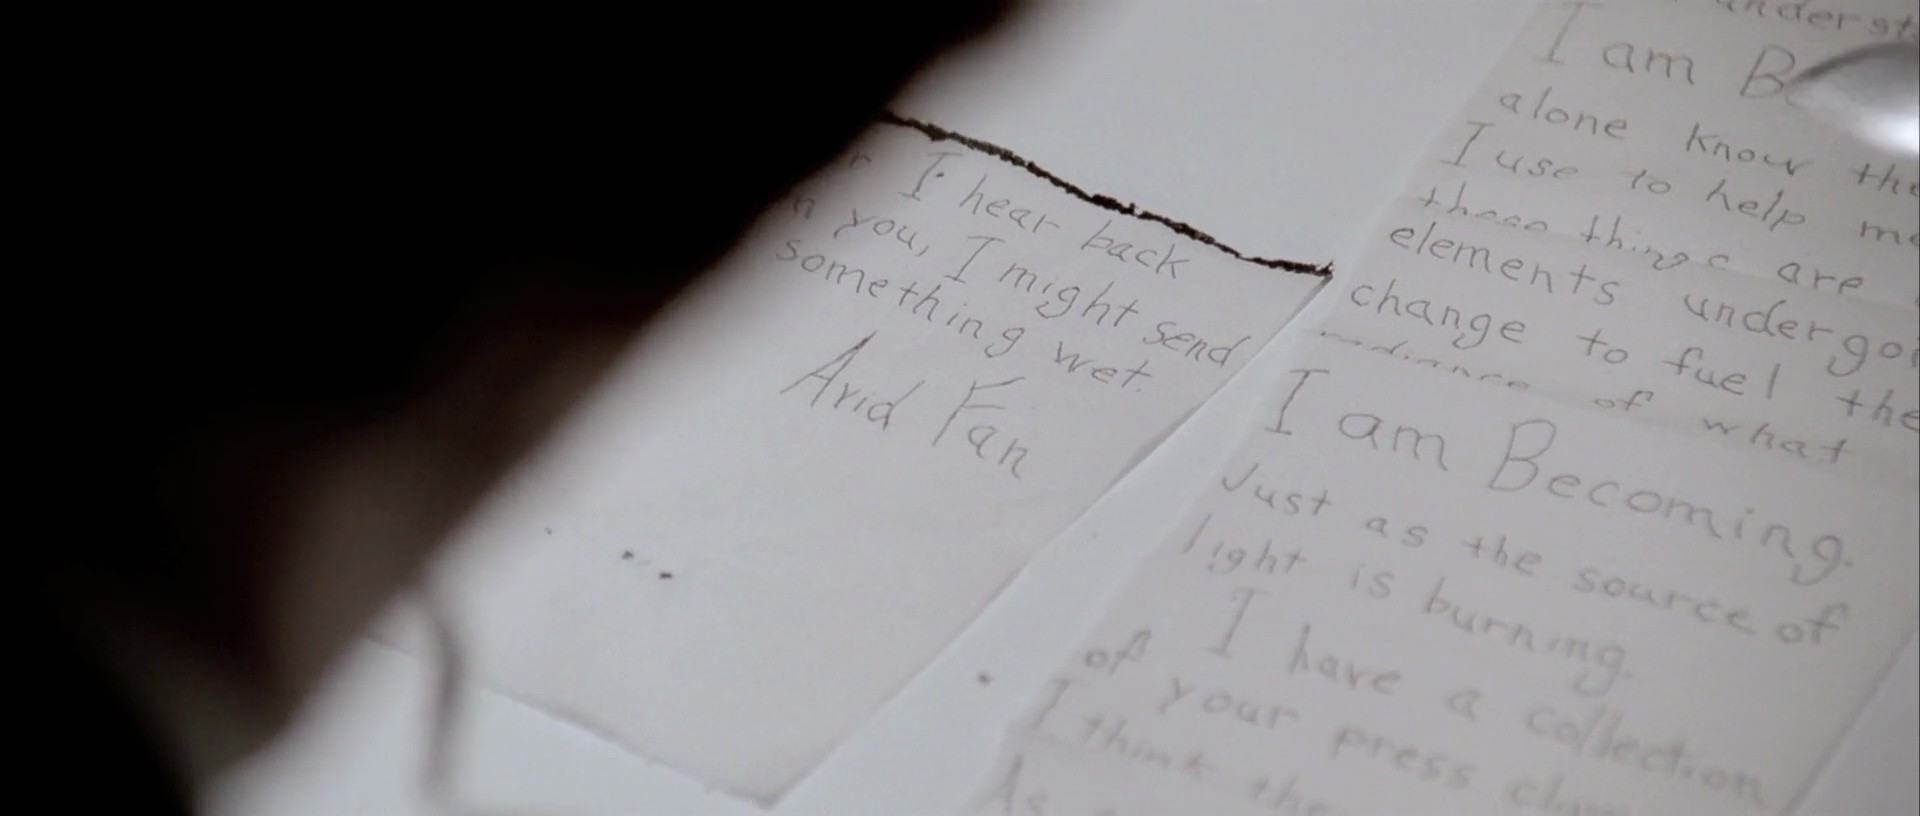 I hear back
you, I might send
something wet.
Avid Fan
I am
alone know the
I use to help me
these things are
elements undergoi
change to fuel the
of what
I am Becoming.
Just as the source of
light is burning.
I have a collection
of your press
I think the
As